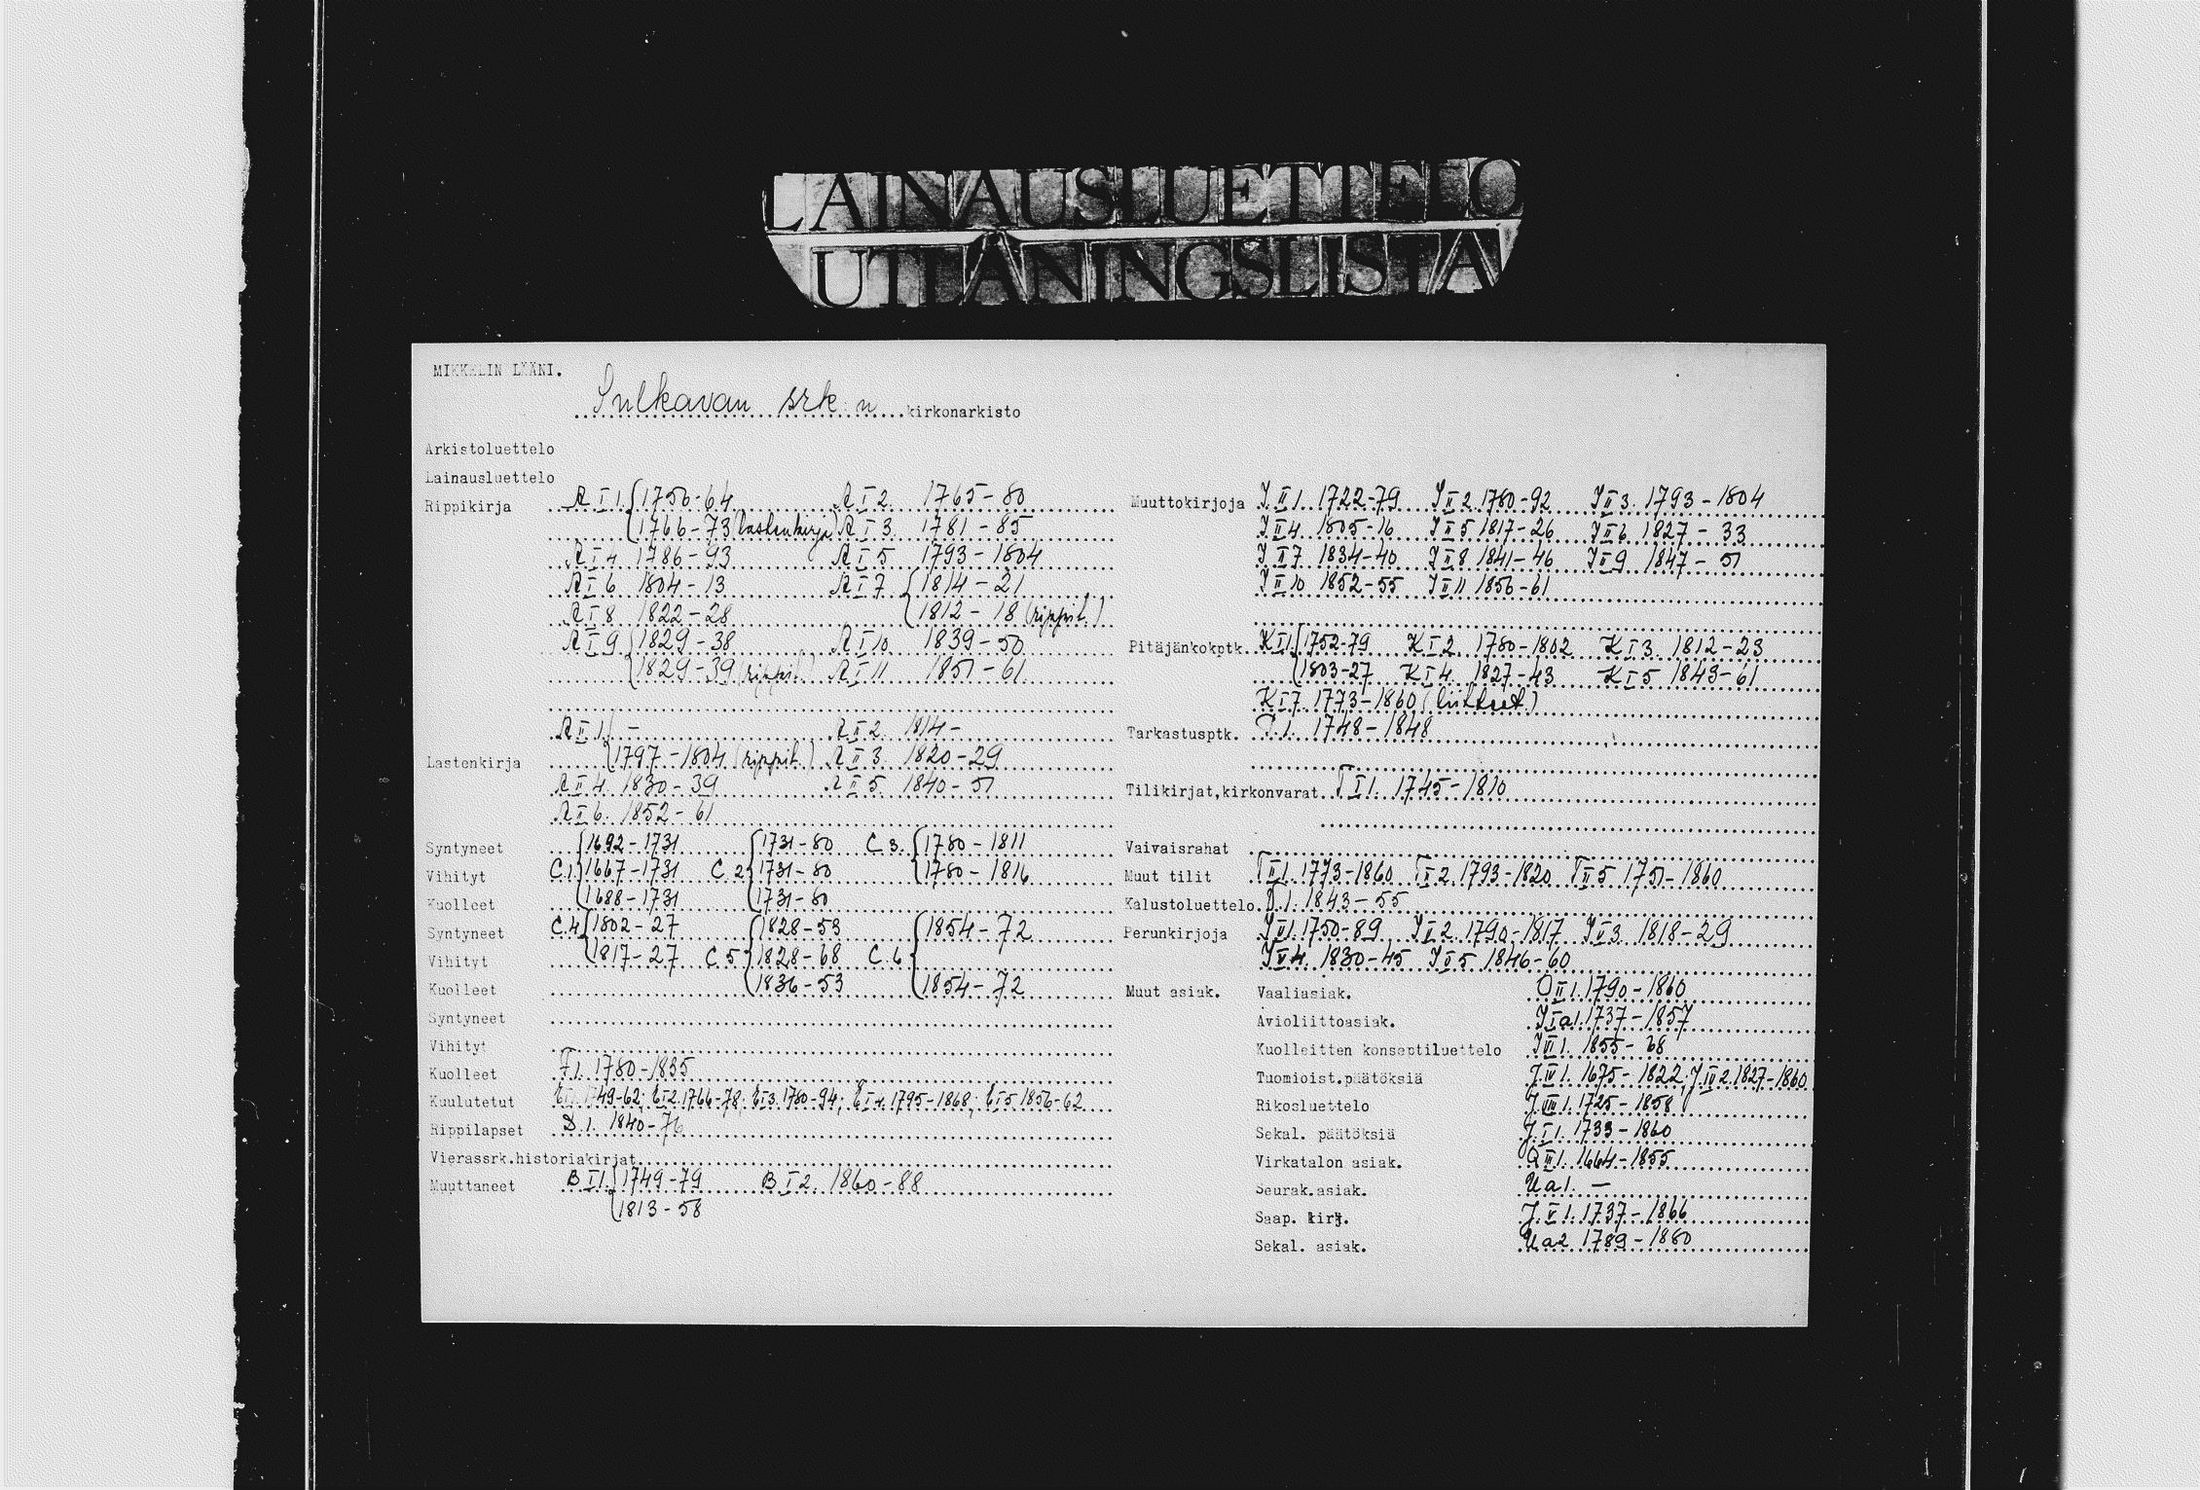 LAINAUSLUETTELO
UTLÅNINGSLISTA
MIKKELIN LÄÄNI.
Sulkavan srk:n kirkonarkisto
Arkistoluettelo
Lainausluettelo
Rippikirja A I 1. 1750-64 A I 2. 1765-80
1766-73 (lastenkirja) A I 3. 1781-85
A I 4 1786-93 A I 5 1793-1804
A I 6 1804-13 A I 7 1814-21
A I 8 1822-28 1812-18 (rippil.)
A I 9 1829-38 A I 10 1839-50
1829-39 (rippil.) A I 11 1851-61
A II 1. - A II 2. 1814-
Lastenkirja 1797-1804 (rippil.) A II 3. 1820-29
A II 4. 1830-39 A II 5. 1840-51
A II 6. 1852-61
Syntyneet 1692-1731 1731-80 C 3. 1780-1811
Vihityt C.1. 1667-1731 C.2 1731-80 1780-1816
Kuolleet 1688-1731 1731-80
Syntyneet C.4 1802-27 1828-53 1854-72
Vihityt 1817-27 C.5 1828-68 C.6
Kuolleet 1836-53 1854-72
Syntyneet
Vihityt
Kuolleet F1. 1780-1835
Kuulutetut E I 1. 1749-62; E I 2. 1766-78; E I 3. 1780-94; E I 4. 1795-1868; E I 5 1856-62
Rippilapset D.1. 1840-76
Vierassrk.historiakirjat
Muuttaneet B I 1. 1749-79 B I 2. 1860-88
1813-58
Muuttokirjoja J II 1. 1722-79 J II 2. 1780-92 J II 3. 1793-1804
J II 4. 1805-16 J II 5 1817-26 J II 6 1827-33
J II 7 1834-40 J II 8 1841-46 J II 9 1847-51
J II 10 1852-55 J II 11 1856-61
Pitäjänkokptk. K I 1. 1752-79 K I 2. 1780-1802 K I 3. 1812-23
1803-27 K I 4. 1827-43 K I 5 1843-61
K I 7. 1773-1860 (liitteet)
Tarkastusptk. 1. 1748-1848
Tilikirjat,kirkonvarat T I 1. 1745-1810
Vaivaisrahat
Muut tilit T II 1. 1773-1860 T II 2. 1793-1820 T II 5 1751-1860
Kalustoluettelo 1. 1843-55
Perunkirjoja 1750-89 1790-1817 1818-29
1830-45 1846-60
Muut asiak. Vaaliasiak. O II 1. 1790-1860
Avioliittoasiak. 1737-1857
Kuolleitten konseptiluettelo 1855-68
Tuomioist.päätöksiä J IV 1. 1675-1822; J IV 2. 1827-1860
Rikosluettelo J VIII 1. 1725-1858
Sekal. päätöksiä J I 1. 1733-1860
Virkatalon asiak. 1. 1664-1855
Seurak.asiak. U a 1. -
Saap. kirj. J V 1. 1737-1866
Sekal. asiak. U a 2 1789-1880